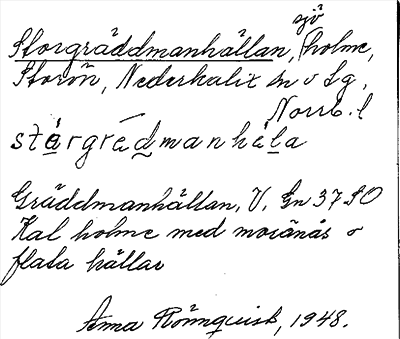 Storgräddmanhällan, sjö holme,
Storön, Nederkalix sn o Lg,
Norrb. l
stårgrädmanhäla
Gräddmanhällan, V, Gn 37 SO
Kal holme med moränås o
flata hällar
Anna Rönnquist, 1948.